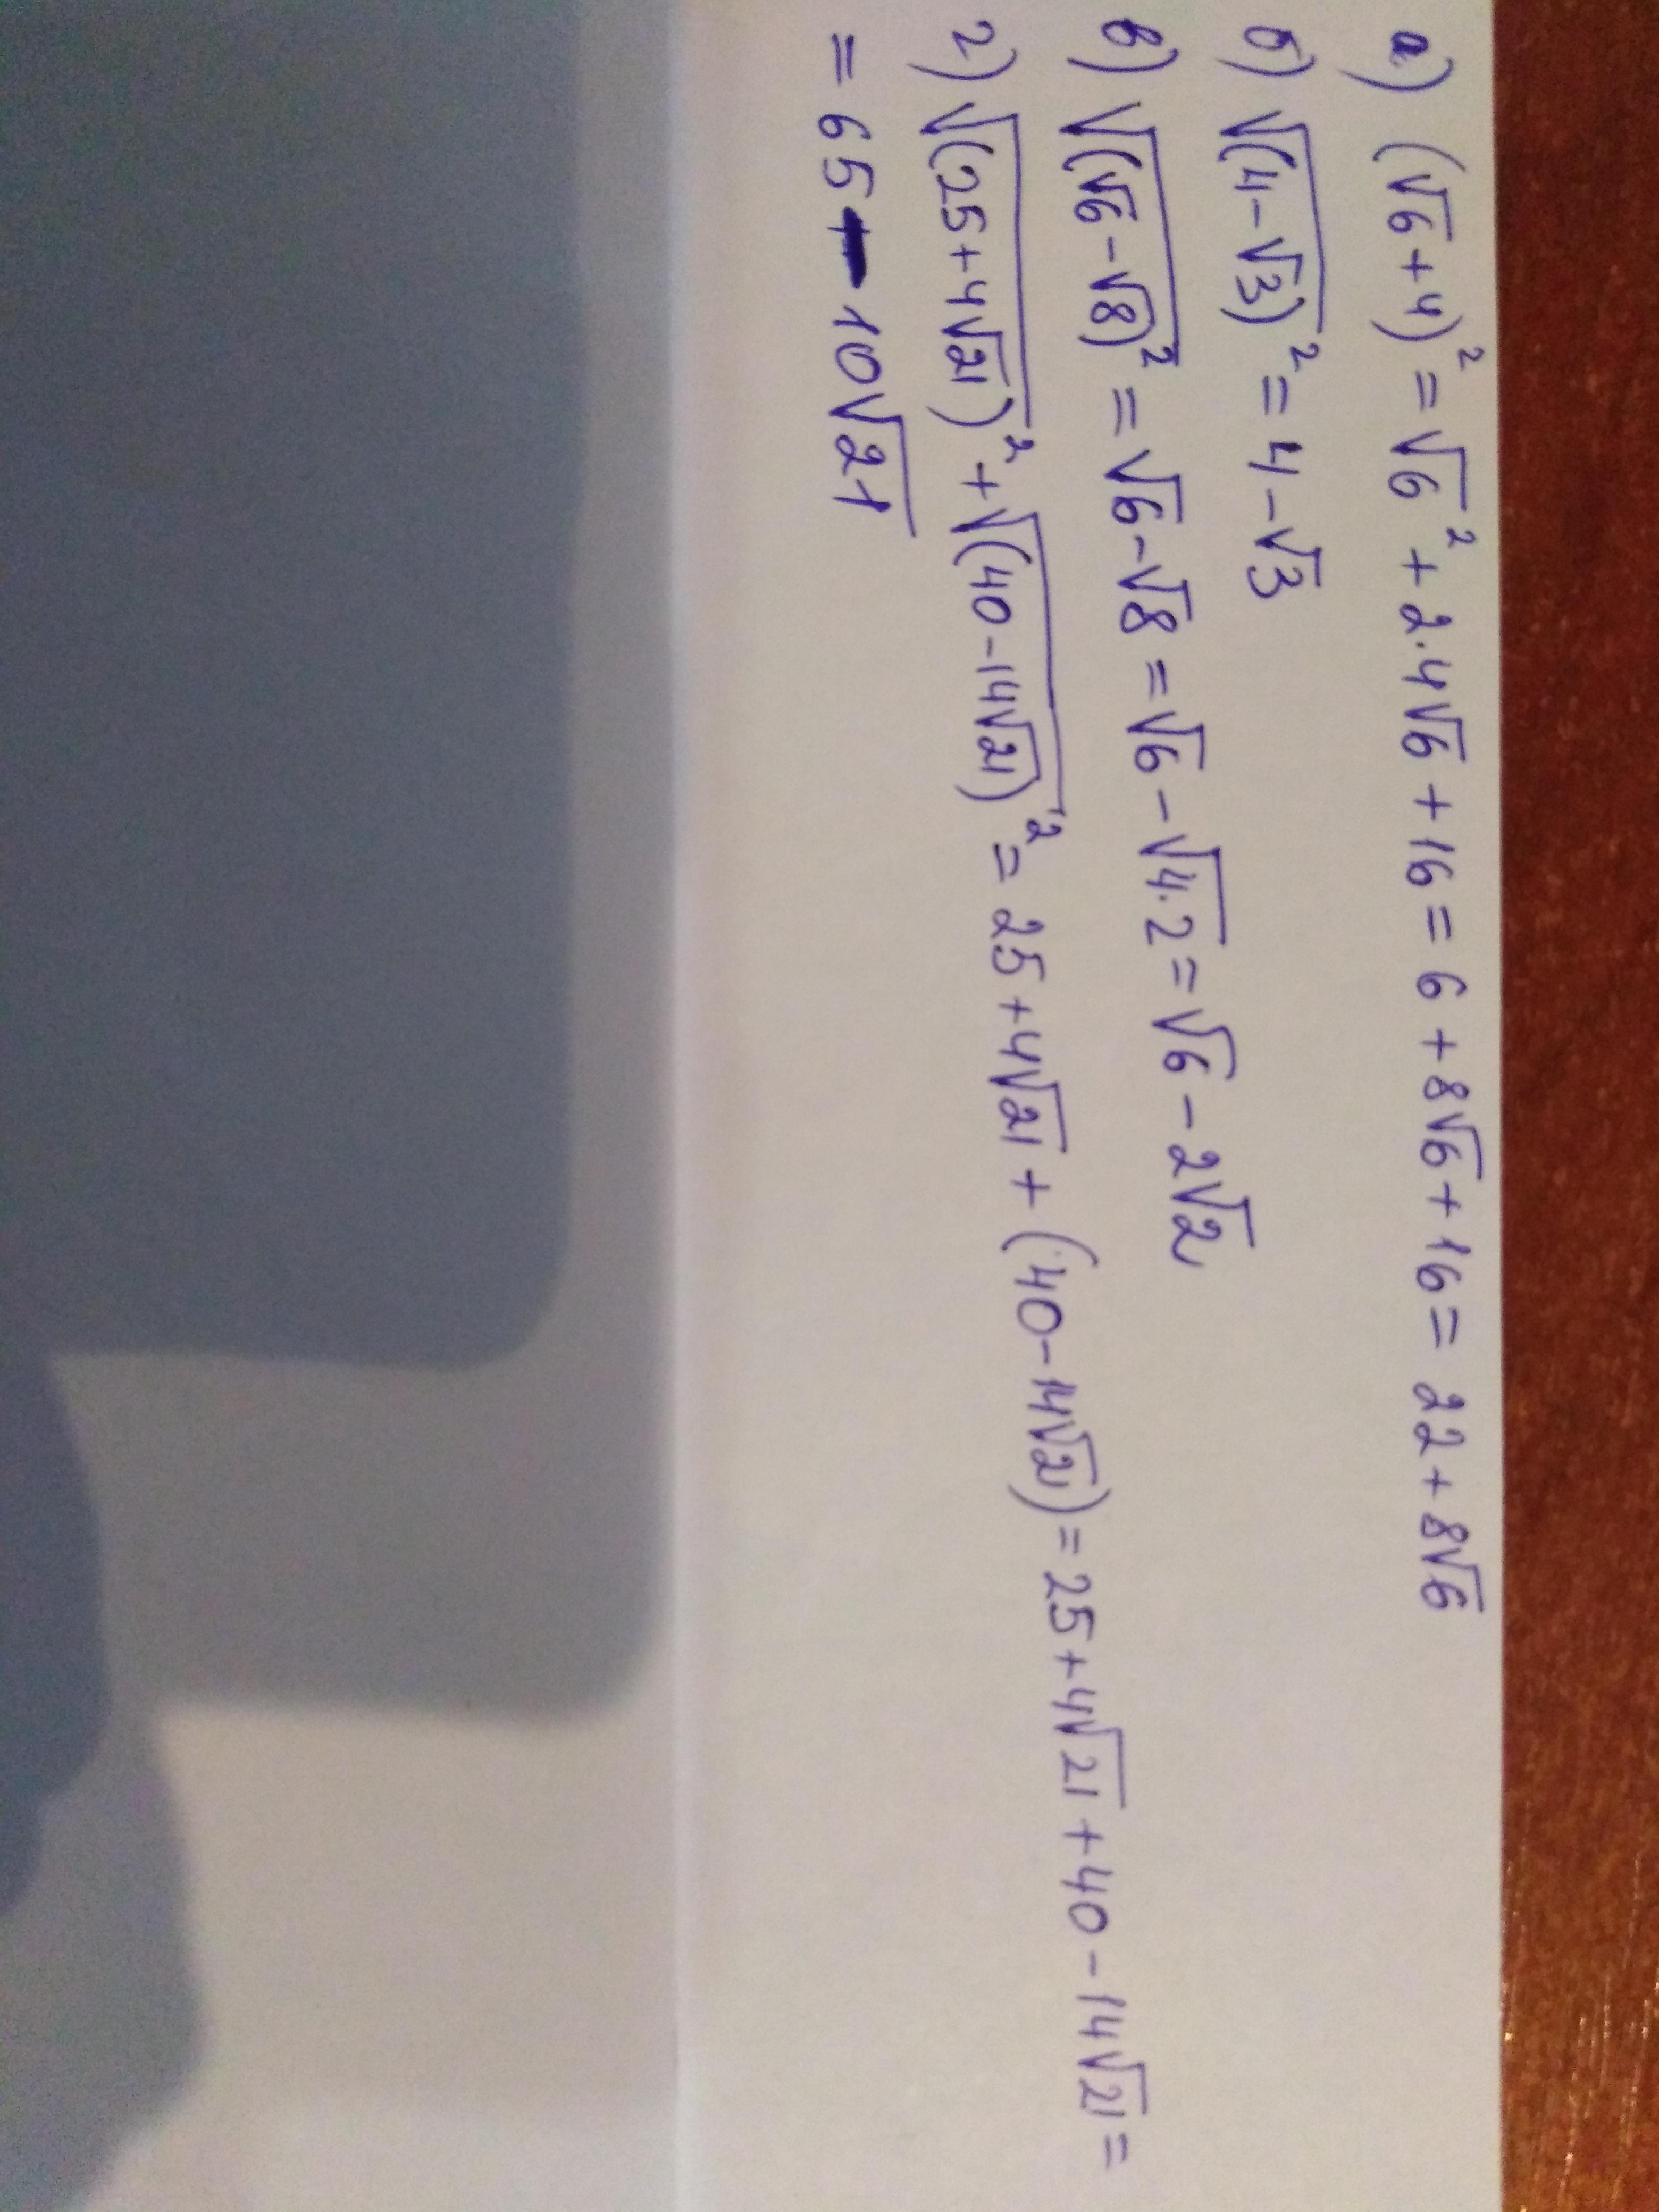 а) (√6+4)² = √6² + 2·4√6 + 16 = 6 + 8√6 + 16 = 22 + 8√6
б) √(4-√3)² = 4 - √3
в) √(√6-√8)² = √6 - √8 = √6 - √4·2 = √6 - 2√2
г) √(25+4√21)² + √(40-14√21)² = 25 + 4√21 + (40-14√21) = 25 + 4√21 + 40 - 14√21 =
= 65 - 10√21